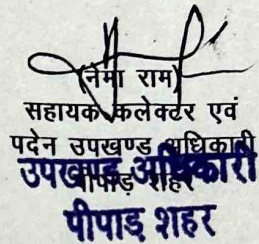 (नेमा राम)
सहायक कलेक्टर एवं
पदेन उपखण्ड अधिकारी
पीपाड़ शहर
उपखण्ड अधिकारी
पीपाड़ शहर